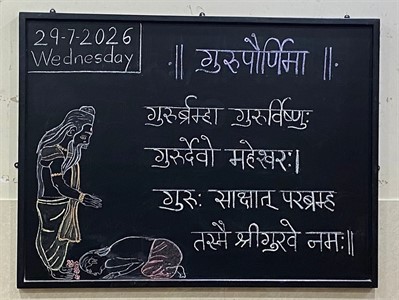 29-7-2026
Wednesday
॥ गुरुपौर्णिमा ॥
गुरुर्ब्रम्हा गुरुर्विष्णुः
गुरुर्देवो महेश्वरः।
गुरुः साक्षात् परब्रम्ह
तस्मै श्रीगुरवे नमः॥